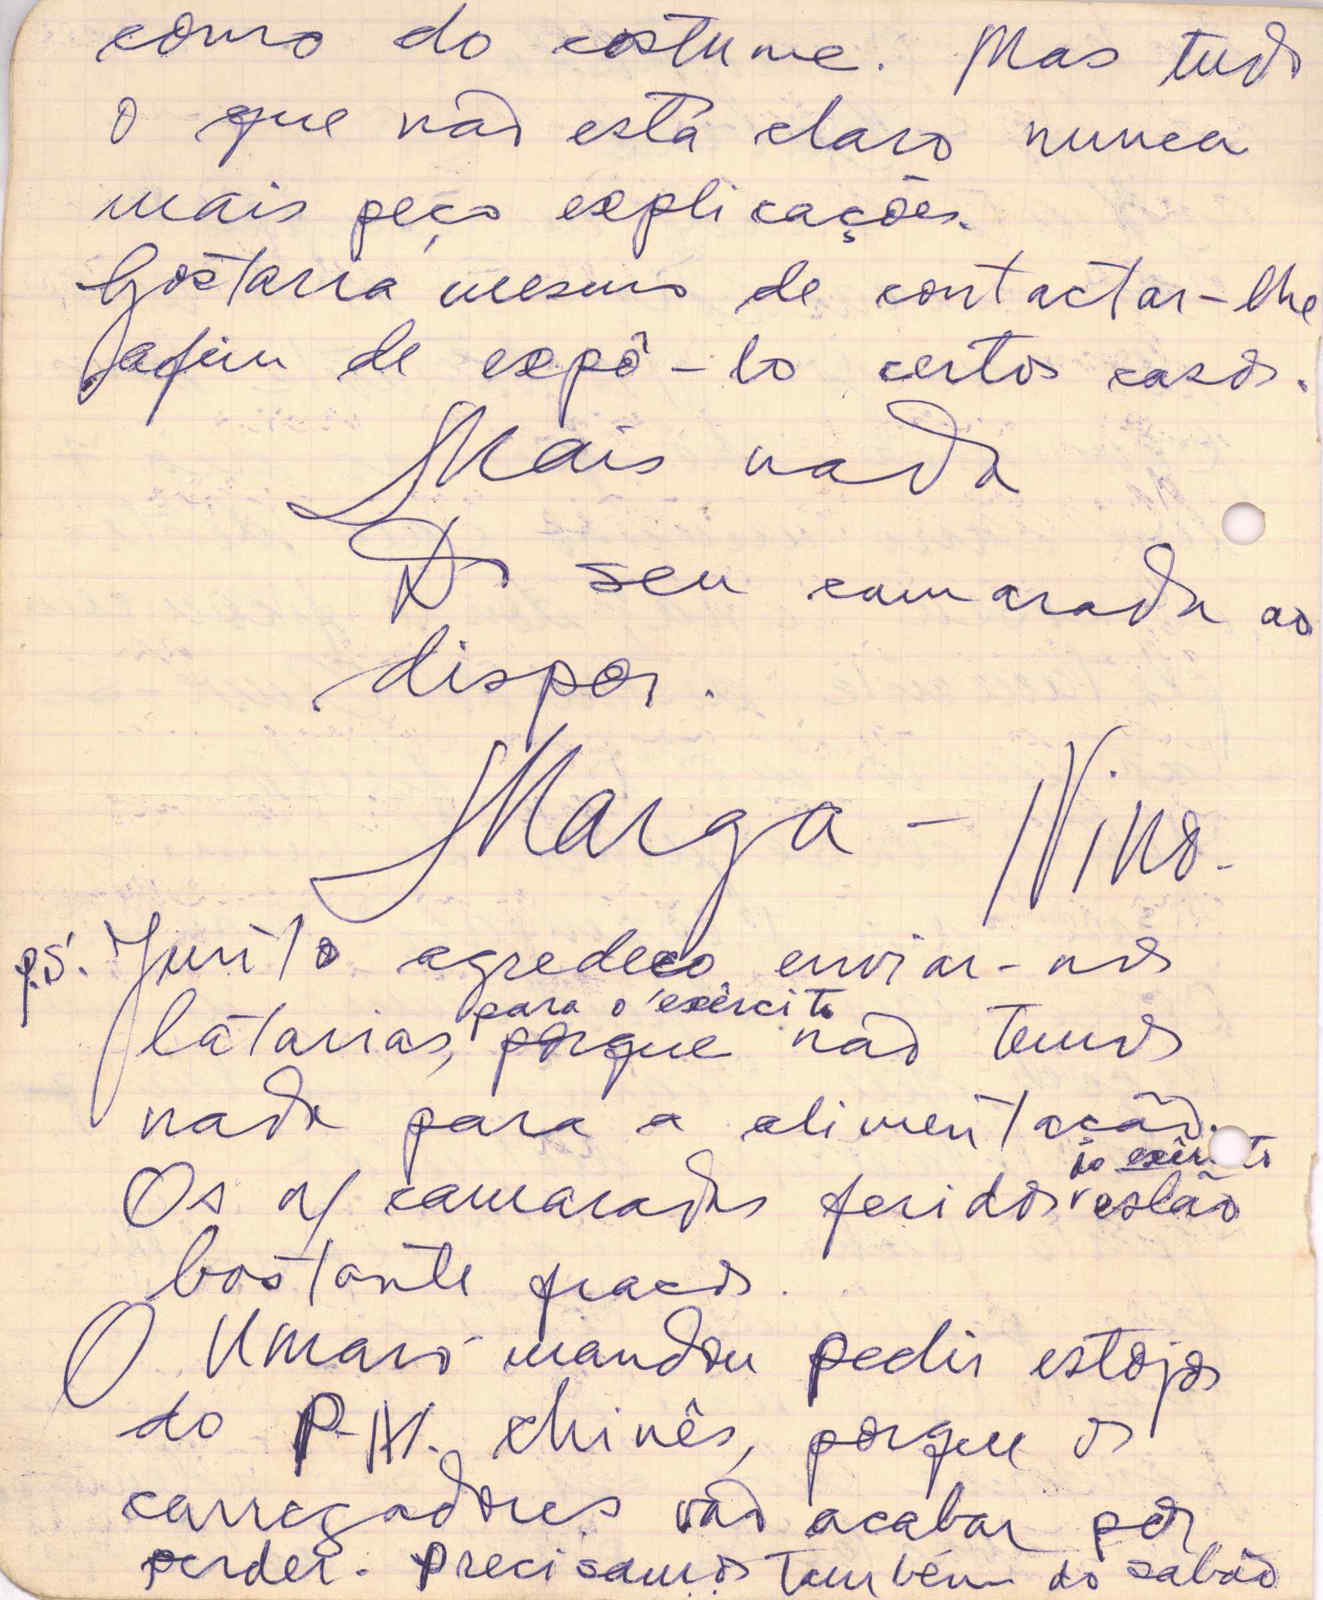 como do costume. Mas tudo
o que não está claro nunca
mais peço explicações.
Gostaria mesmo de contactar-lhe
afim de expô-lo certos casos.
Mais nada
Do seu camarada ao
dispor.
Marga - Nino.
p.s. Junto agredeco enviar-nos
para o exército
latarias, porque não temos
nada para a alimentação.
do exército
Os n/ camaradas feridos estão
bastante fracos.
O Umaro mandou pedir estojos
do P.M. chinês, porque os
carregadores vão acabar por
perder. Precisamos também do sabão